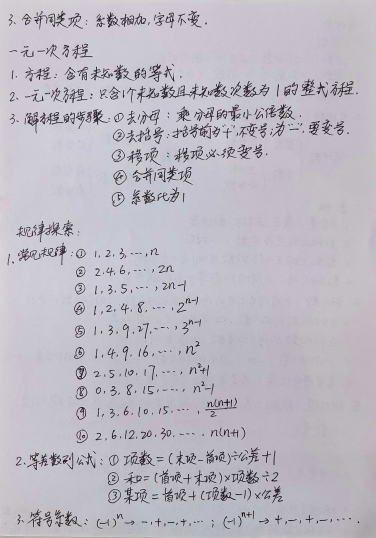 3. 合并同类项：系数相加，字母不变．
一元一次方程
1. 方程：含有未知数的等式．
2. 一元一次方程：只含1个未知数且未知数次数为1的整式方程．
3. 解方程的步骤：① 去分母：乘分母的最小公倍数．
② 去括号：括号前为“+”，不变号；为“-”，要变号．
③ 移项：移项必须变号．
④ 合并同类项
⑤ 系数化为1
规律探索：
1. 常见规律：① 1, 2, 3, …, n
② 2, 4, 6, …, 2n
③ 1, 3, 5, …, 2n-1
④ 1, 2, 4, 8, …, 2^{n-1}
⑤ 1, 3, 9, 27, …, 3^{n-1}
⑥ 1, 4, 9, 16, …, n²
⑦ 2, 5, 10, 17, …, n²+1
⑧ 0, 3, 8, 15, …, n²-1
⑨ 1, 3, 6, 10, 15, …, n(n+1)/2
⑩ 2, 6, 12, 20, 30, … n(n+1)
2. 等差数列公式：① 项数=(末项-首项)÷公差+1
② 和=(首项+末项)×项数÷2
③ 某项=首项+(项数-1)×公差
3. 符号系数：(-1)^n → -, +, -, +, …; (-1)^{n+1} → +, -, +, -, ….